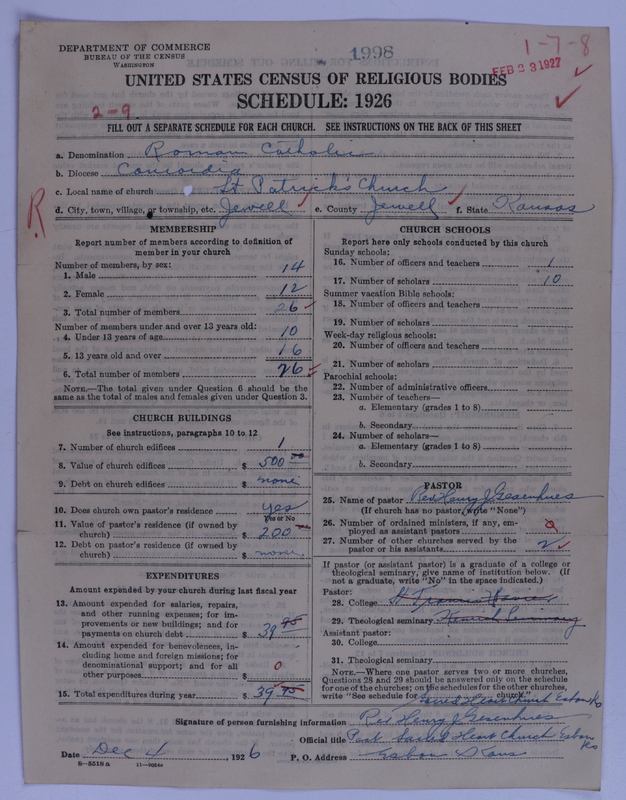 DEPARTMENT OF COMMERCE
BUREAU OF THE CENSUS
WASHINGTON
1998
1-7-8
FEB 23 1927
UNITED STATES CENSUS OF RELIGIOUS BODIES
SCHEDULE: 1926
2-9
FILL OUT A SEPARATE SCHEDULE FOR EACH CHURCH. SEE INSTRUCTIONS ON THE BACK OF THIS SHEET
a. Denomination Roman Catholic
b. Diocese Concordia
c. Local name of church St Patrick's Church
d. City, town, village, or township, etc. Jewell e. County Jewell f. State Kansas
R
MEMBERSHIP
Report number of members according to definition of member in your church
Number of members, by sex:
1. Male 14
2. Female 12
3. Total number of members 26
Number of members under and over 13 years old:
4. Under 13 years of age 10
5. 13 years old and over 16
6. Total number of members 26
NOTE.—The total given under Question 6 should be the
same as the total of males and females given under Question 3.
CHURCH BUILDINGS
See instructions, paragraphs 10 to 12
7. Number of church edifices 1
8. Value of church edifices $ 500 00
9. Debt on church edifices $ none
10. Does church own pastor's residence yes
Yes or No
11. Value of pastor's residence (if owned by
church) $ 200
12. Debt on pastor's residence (if owned by
church) $ none
EXPENDITURES
Amount expended by your church during last fiscal year
13. Amount expended for salaries, repairs,
and other running expenses; for im-
provements or new buildings; and for
payments on church debt $ 39 95
14. Amount expended for benevolences, in-
cluding home and foreign missions; for
denominational support; and for all
other purposes $ 0
15. Total expenditures during year $ 39 95
CHURCH SCHOOLS
Report here only schools conducted by this church
Sunday schools:
16. Number of officers and teachers 1
17. Number of scholars 10
Summer vacation Bible schools:
18. Number of officers and teachers
19. Number of scholars
Week-day religious schools:
20. Number of officers and teachers
21. Number of scholars
Parochial schools:
22. Number of administrative officers
23. Number of teachers—
a. Elementary (grades 1 to 8)
b. Secondary
24. Number of scholars—
a. Elementary (grades 1 to 8)
b. Secondary
PASTOR
25. Name of pastor Rev Henry J Gesenhues
(If church has no pastor, write "None")
26. Number of ordained ministers, if any, em-
ployed as assistant pastors 0
27. Number of other churches served by the
pastor or his assistants 2
If pastor (or assistant pastor) is a graduate of a college or
theological seminary, give name of institution below. (If
not a graduate, write "No" in the space indicated.)
Pastor:
28. College St Francis
29. Theological seminary Kenrick Seminary
Assistant pastor:
30. College
31. Theological seminary
NOTE.—Where one pastor serves two or more churches,
Questions 28 and 29 should be answered only on the schedule
for one of the churches; on the schedules for the other churches,
write "See schedule for Sacred Heart Church Esbon Ks church."
Signature of person furnishing information Rev Henry J Gesenhues
Official title Past Sacred Heart Church Esbon
Ks
Date Dec 4, 1926 P. O. Address Esbon Kans
8-5518 a 11-9024a